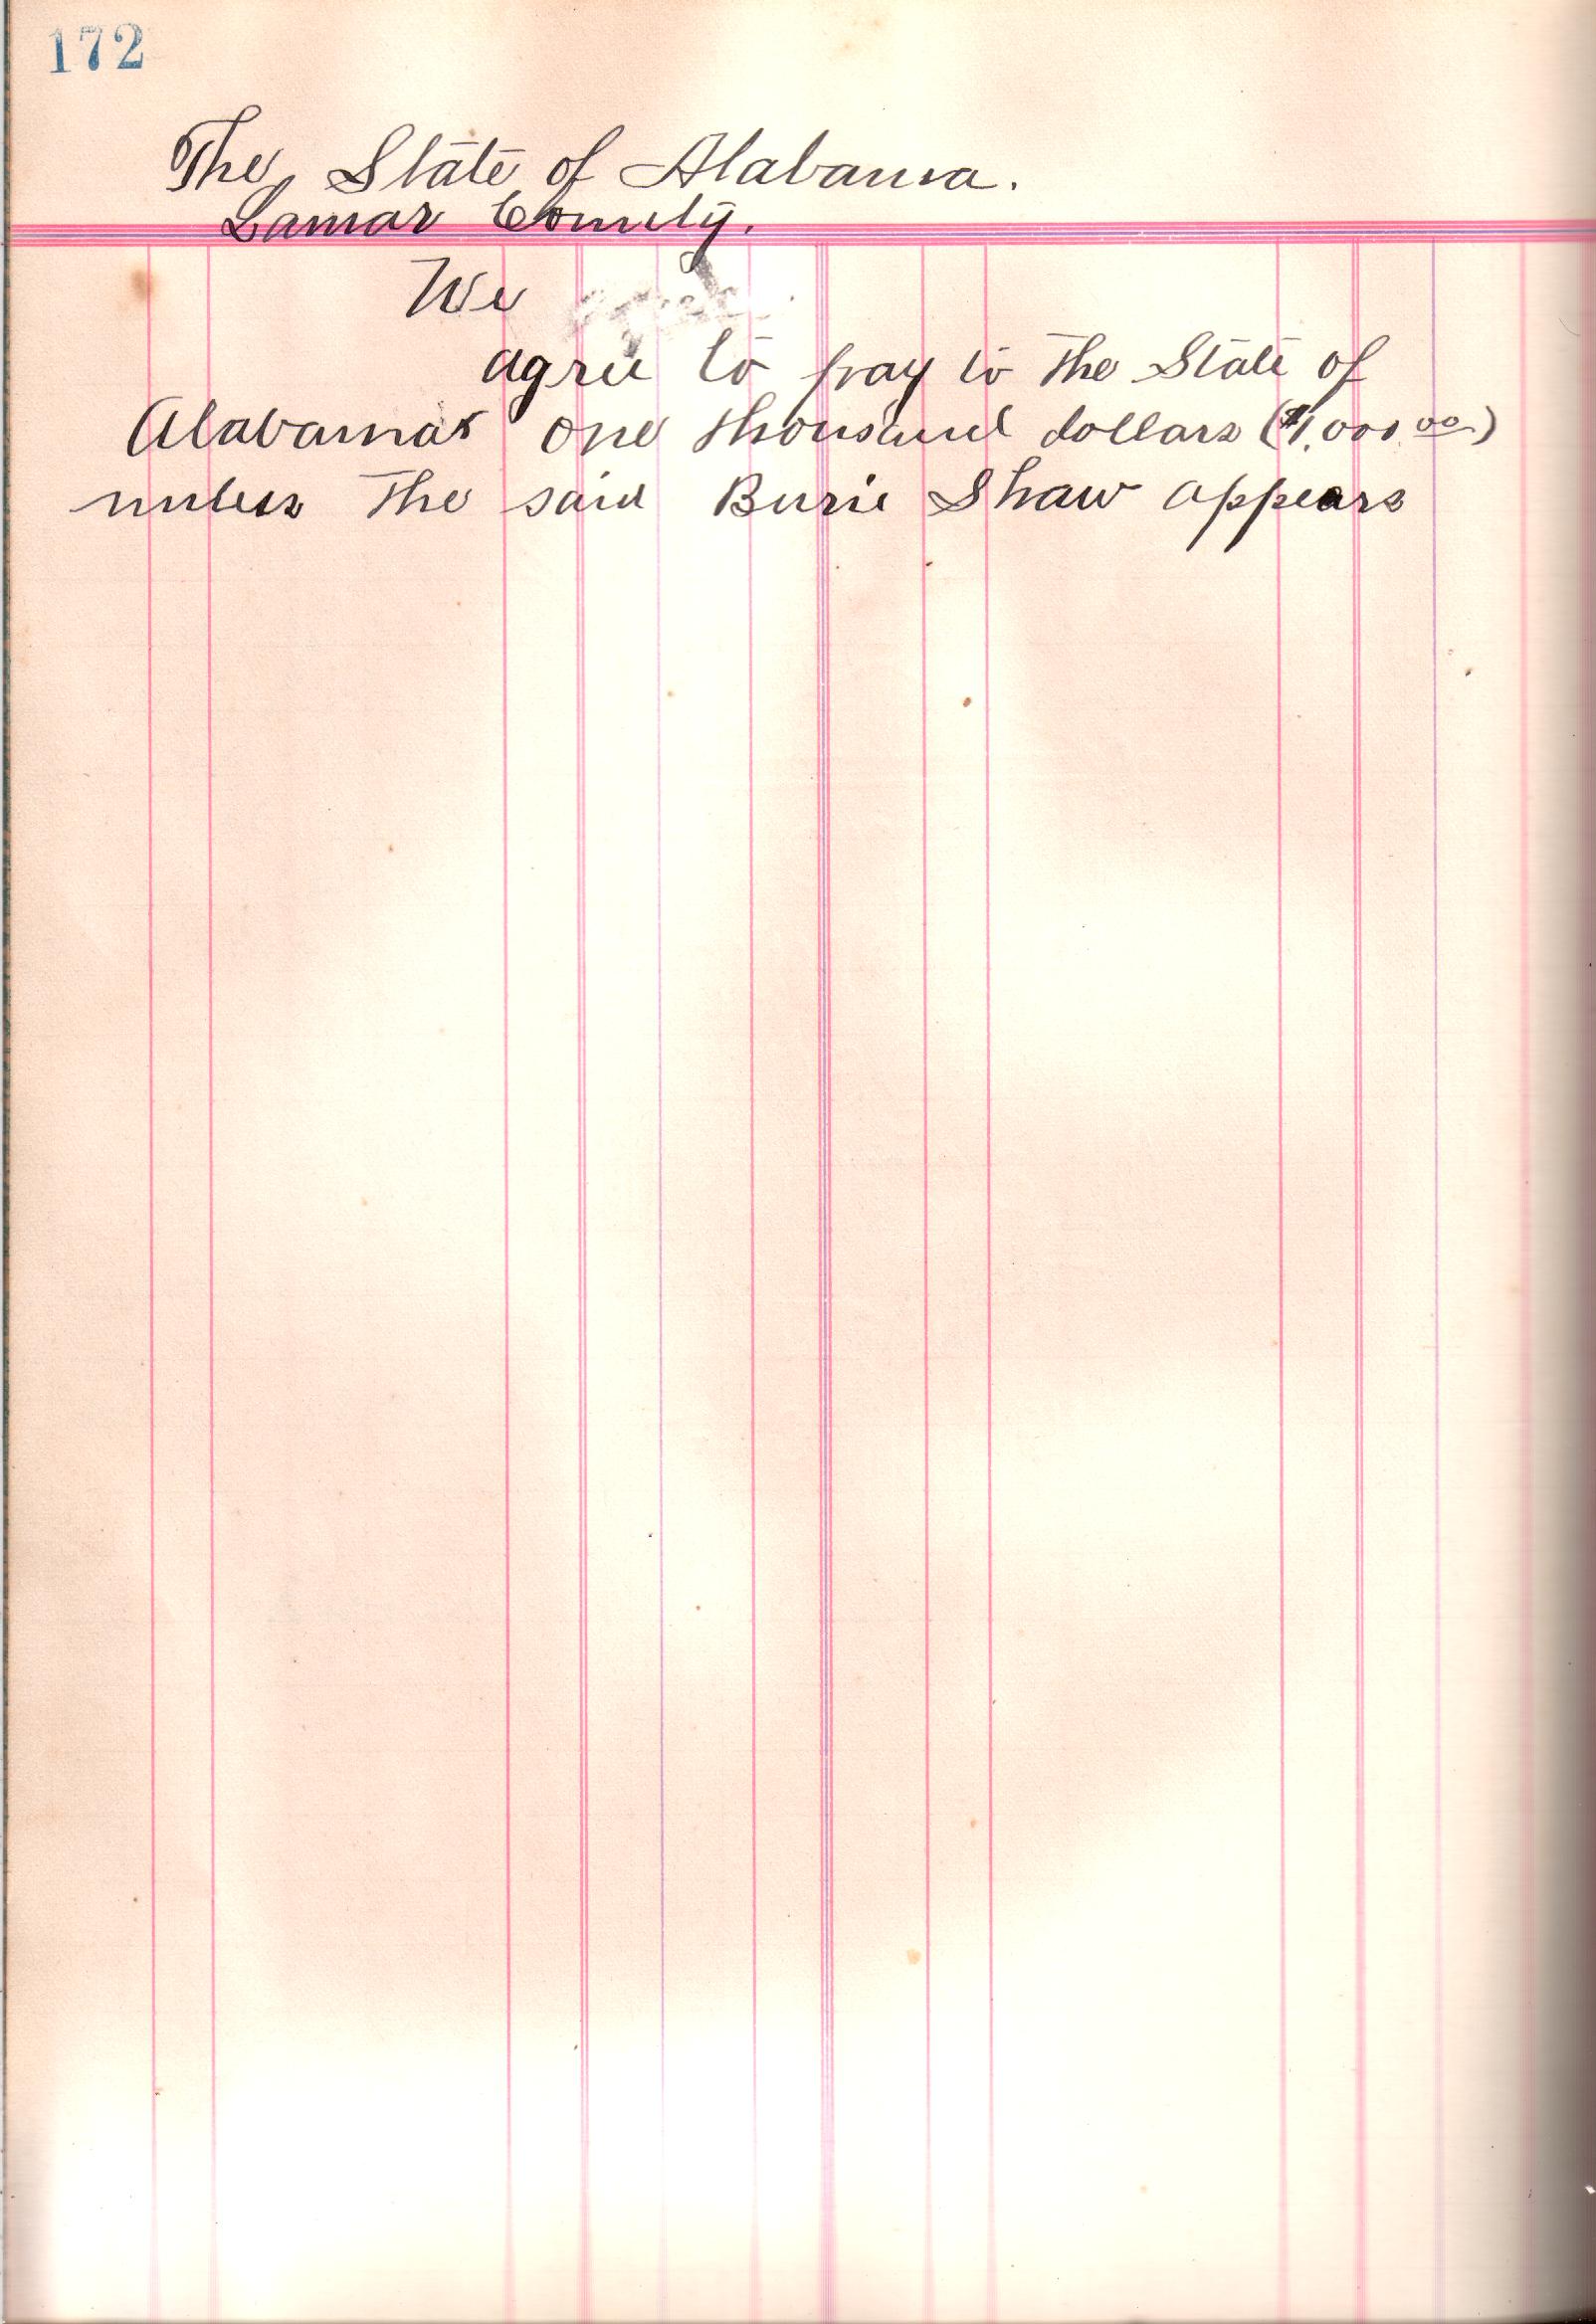 172
The State of Alabama.
Lamar County.
We
agree to pay to the State of
Alabama one thousand dollars ($1,000.00)
unless the said Burie Shaw appears